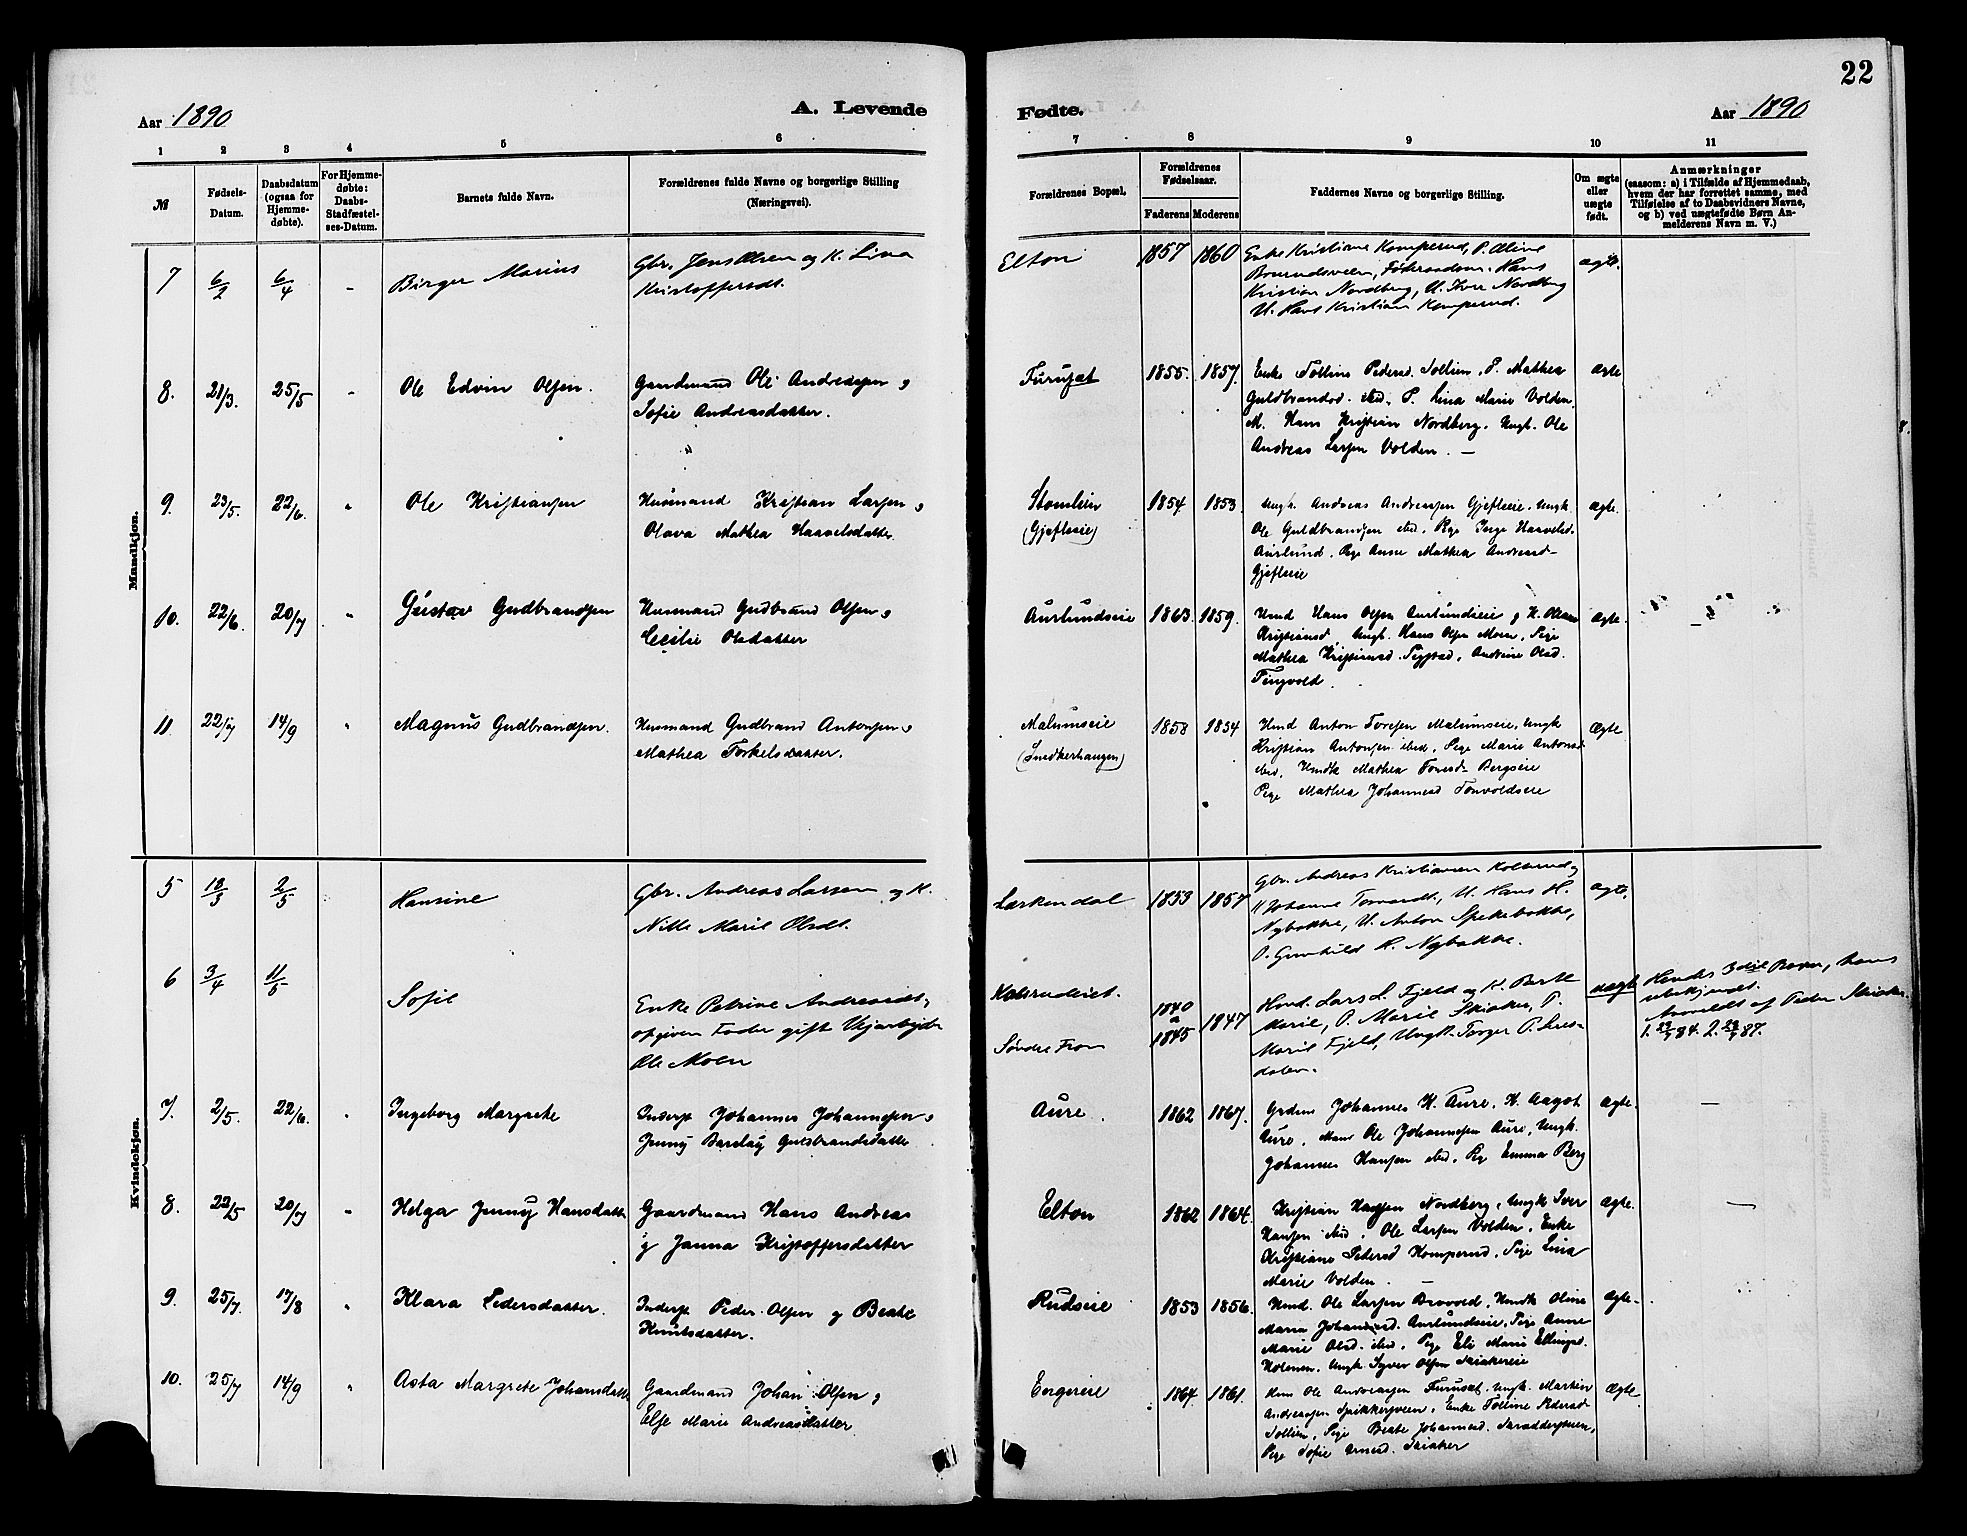 22
Aar 1890
A. Levende
Fødte.
Aar 1890
1 2 3 4 5 6
7 8 9 10 11
№
Fødsels-
Datum.
Daabsdatum
(ogsaa for
Hjemme-
døbte).
For Hjemme-
døbte:
Daabs-
Stadfæstel-
ses-Datum.
Barnets fulde Navn.
Forældrenes fulde Navne og borgerlige Stilling
(Næringsvei).
Forældrenes Bopæl.
Forældrenes
Fødselsaar.
Faderens Moderens
Faddernes Navne og borgerlige Stilling.
Om ægte
eller
uægte
født.
Anmærkninger
(saasom: a) i Tilfælde af Hjemmedaab,
hvem der har forrettet samme, med
Tilføielse af to Daabsvidners Navne,
og b) ved uægtefødte Børn An-
melderens Navn m. V.)
Mandkjøn.
7 6/2 6/4 - Birger Marius
Gbr. Jens Olsen og K. Lina
Kristoffersdt.
Elton 1857 1860
Enke Kristiane Komperud, P. Oline
Kristian Nordberg, U. Iver Nordberg
U. Hans Kristian Komperud.
ægte.
8. 21/3. 25/5 - Ole Edvin Olsen.
Gaardmand Ole Andreassen og
Sofie Andreasdatter.
Furuset 1855. 1857.
Enke Tolline Pedersd. Sollien, P. Mathea
Guldbrandsd. ibid. P. Lina Marie Volden,
M. Hans Kristian Nordberg, Ungk. Ole
Andreas Larsen Volden. —
ægte
9. 23/5. 22/6. " Ole Kristiansen
Husmand Kristian Larsen og
Olava Mathea Haavelsdatter
Stomleien
(Gjefleeie)
1854 1853.
Ungk. Andreas Andreassen Gjefleeie. Ungk.
Ole Guldbrandsen ibid, Pige Inge Haavelsd.
Aurlund. Pige Anne Mathea Andresd-
Gjefleeie
ægte.
10. 22/6. 20/7 " Gustav Gudbrandsen
Husmand Gudbrand Olsen og
Cecilie Olsdatter
Aurlundseie 1863. 1859.
Hmd Hans Olsen Aurlundseie og K.
Kristiansd. Ungk. Hans Olsen Moen, Pige
Mathea Kristiansd. Andrine Olsd.
Tingvold.
ægte. -
11. 22/7 14/9 " Magnus Gudbrandsen.
Husmand Gudbrand Antonsen og
Mathea Torkelsdatter.
Malumseie
(Snedkerhaugen)
1858 1854.
Hmd Anton Toresen Malumseie, Ungk
Kristian Antonsen ibid, Pige Marie Antonsd
ibid, Hmdk Mathea Bergseie
Pige Mathea Johannesd Tonvoldseie
ægte
Kvindekjøn.
5 13/3 2/5 Hansine
Gbr. Andreas Larsen og K.
Nille Marie Olsdt.
Lerkendal 1853 1857
Gbr. Andreas Kristiansen Kolberud og
K Johanne U. Hans H.
Nybakke, U. Anton Spekebakke,
P. Gunhild H. Nybakke.
ægte,
6 3/4 11/5 Sofie
Enke Petrine Andreasdt,
opgiven Fader gift Veiarbeider
Ole Moen
Kolsrudeiet.
Søndre Fron
1840
a
1845
1847
Hmd. Lars L. Fjeld og K. Berte
Marie, P. Marie Skiaker, P.
Marie Fjeld, Ungk. Torger P. Lies-
dalen.
uægte
Hendes 3die Barn, hans
ubekjendt.
Anmeldt af Peder Skiaker.
7. 2/5. 22/6. " Ingeborg Margrete
Inderst Johannes Johannesen og
Jenny Barclay Gulbrandsdatte
Aure. 1862 1867.
Grdm Johannes H. Aure, K. Aagot
Aure, Mand Ole Johannesen Aure, Ungk.
Johannes Hansen ibid, Pige Emma Berg
ægte. —
8. 22/5 20/7 " Helga Jenny Hansdatter
Gaardmand Hans Andreas
og Janna Kristoffersdatter
Elton 1862 1864.
Kristian Hansen Nordberg, Ungk Iver
Hansen ibid, Ole Larsen Volden, Enke
Kristiane Pedersd Komperud, Pige Lina
Marie Volden. —
ægte. —
9. 25/7. 17/8 " Klara Pedersdatter.
Inderst Peder Olsen og Beate
Knutsdatter.
Rudseie 1853 1856.
Hmd. Ole Larsen Brovold, Hmdk Oline
Maria Johannesd. Aurlundseie, Pige Anne
Marie Olsd. ibid, Pige Eli Marie Ellingsd.
Holmen. Ungk. Syver Olsen Skiakereie
ægte.
10. 25/7 14/9 " Asta Margrete Johansdatter
Gaardmand Johan Olsen og
Else Marie Andreasdatter
Engereie 1864. 1861.
Mand Ole Andreassen Furuset. Ungk. Martin
Andreassen Enke Tolline Pedersd
Sollien, Pige Beate Johannesd.
Pige Sofie Arnesd. Skiaker
ægte